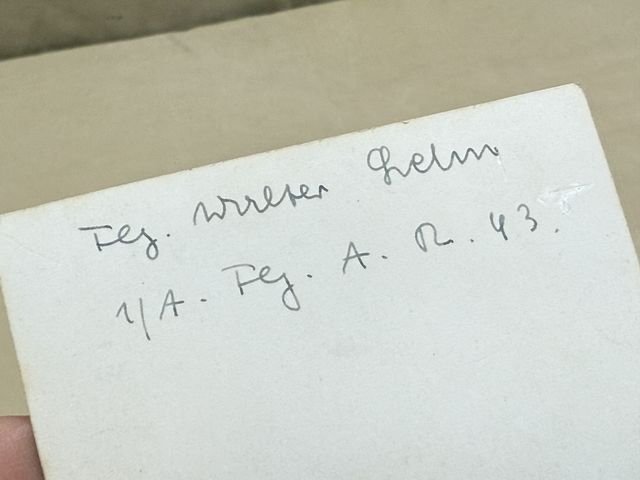 Flg. Walter Helm
1/A. Flg. A. R. 43.